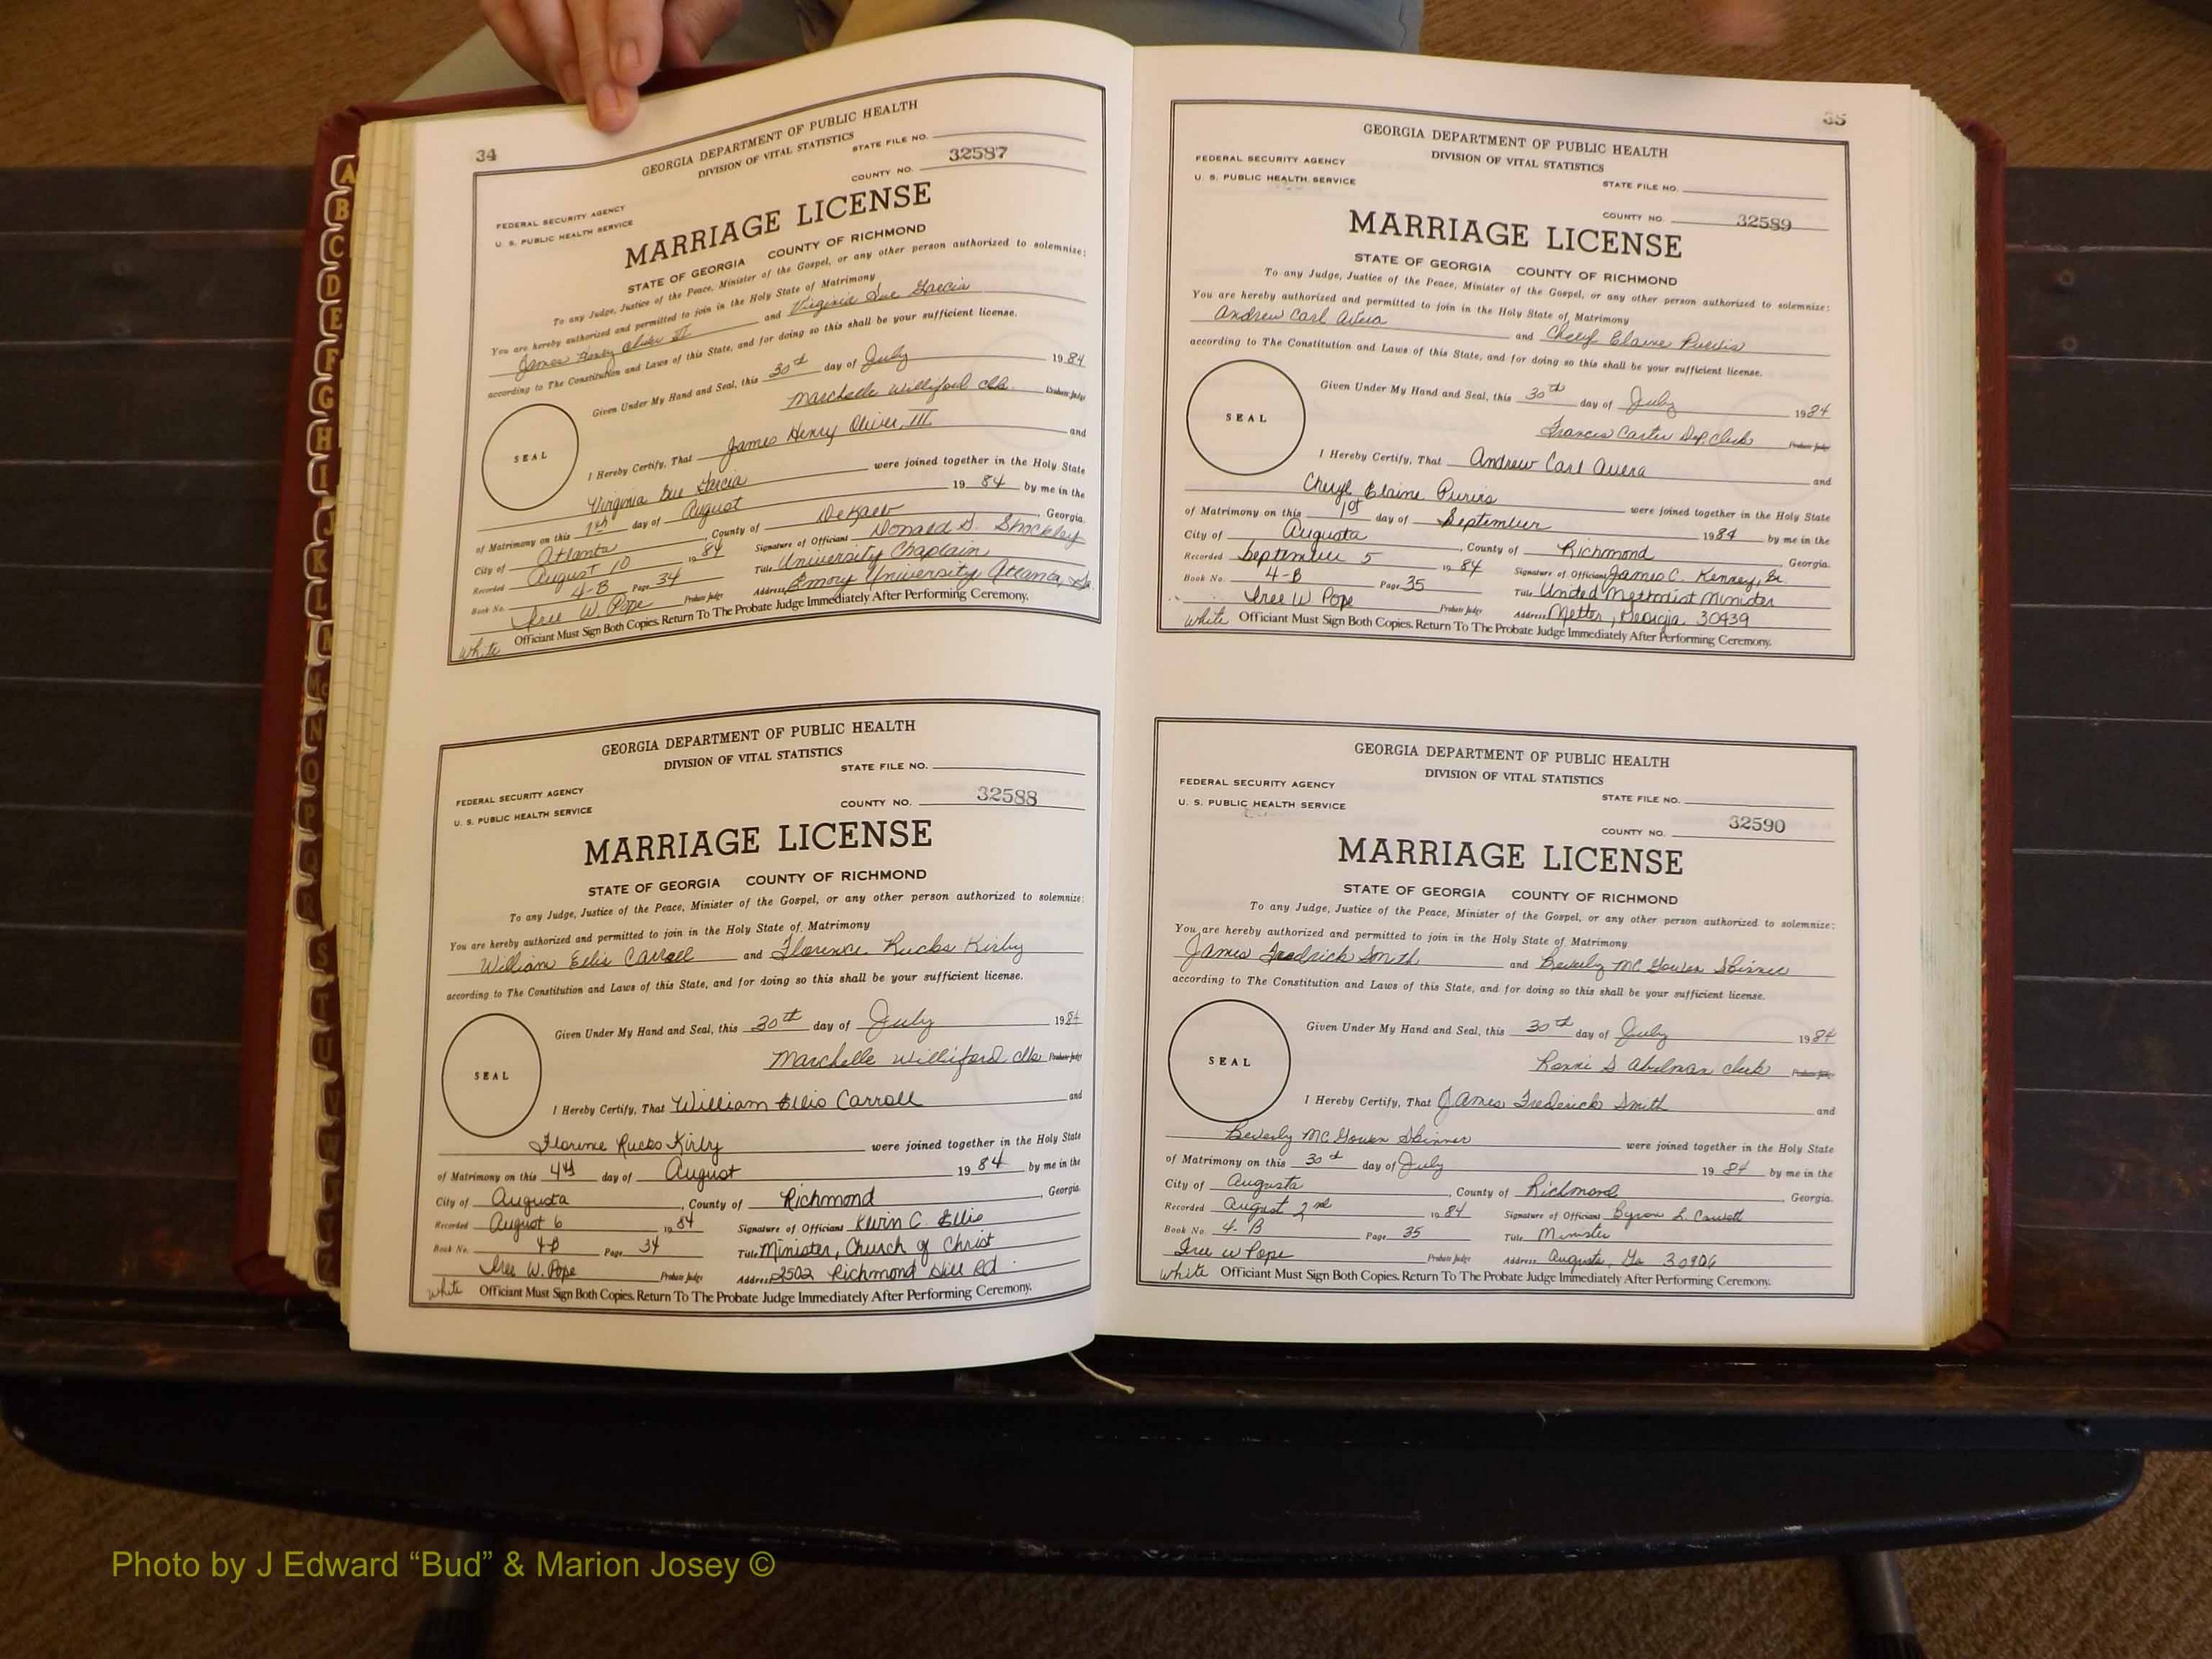 34
GEORGIA DEPARTMENT OF PUBLIC HEALTH
DIVISION OF VITAL STATISTICS
STATE FILE NO.
COUNTY NO. 32587
FEDERAL SECURITY AGENCY
U. S. PUBLIC HEALTH SERVICE
MARRIAGE LICENSE
STATE OF GEORGIA COUNTY OF RICHMOND
To any Judge, Justice of the Peace, Minister of the Gospel, or any other person authorized to solemnize:
You are hereby authorized and permitted to join in the Holy State of Matrimony
James Henry Oliver III and Virginia Sue Garcia
according to The Constitution and Laws of this State, and for doing so this shall be your sufficient license.
Given Under My Hand and Seal, this 30th day of July 1984
Marchelle Williford clk. Probate Judge
SEAL
I Hereby Certify, That James Henry Oliver, III and
Virginia Sue Garcia were joined together in the Holy State
of Matrimony on this 1st day of August 19 84 by me in the
City of Atlanta, County of DeKalb, Georgia.
Recorded August 10 1984 Signature of Officiant Donald G. Shockley
Book No. 4-B Page 34 Title University Chaplain
Iree W. Pope Probate Judge Address Emory University Atlanta, Ga.
white Officiant Must Sign Both Copies. Return To The Probate Judge Immediately After Performing Ceremony.
GEORGIA DEPARTMENT OF PUBLIC HEALTH
DIVISION OF VITAL STATISTICS
STATE FILE NO.
FEDERAL SECURITY AGENCY
U. S. PUBLIC HEALTH SERVICE
COUNTY NO. 32588
MARRIAGE LICENSE
STATE OF GEORGIA COUNTY OF RICHMOND
To any Judge, Justice of the Peace, Minister of the Gospel, or any other person authorized to solemnize:
You are hereby authorized and permitted to join in the Holy State of Matrimony
William Ellis Carroll and Florence Rucks Kirby
according to The Constitution and Laws of this State, and for doing so this shall be your sufficient license.
Given Under My Hand and Seal, this 30th day of July 1984
Marchelle Williford clk Probate Judge
SEAL
I Hereby Certify, That William Ellis Carroll and
Florence Rucks Kirby were joined together in the Holy State
of Matrimony on this 4th day of August 19 84 by me in the
City of Augusta, County of Richmond, Georgia.
Recorded August 6 1984 Signature of Officiant Kevin C. Ellis
Book No. 4B Page 34 Title Minister, Church of Christ
Iree W. Pope Probate Judge Address 2502 Richmond Hill Rd.
white Officiant Must Sign Both Copies. Return To The Probate Judge Immediately After Performing Ceremony.
35
GEORGIA DEPARTMENT OF PUBLIC HEALTH
DIVISION OF VITAL STATISTICS
FEDERAL SECURITY AGENCY
U. S. PUBLIC HEALTH SERVICE
STATE FILE NO.
COUNTY NO. 32589
MARRIAGE LICENSE
STATE OF GEORGIA COUNTY OF RICHMOND
To any Judge, Justice of the Peace, Minister of the Gospel, or any other person authorized to solemnize:
You are hereby authorized and permitted to join in the Holy State of Matrimony
Andrew Carl Avera and Cheryl Elaine Purvis
according to The Constitution and Laws of this State, and for doing so this shall be your sufficient license.
Given Under My Hand and Seal, this 30th day of July 1984
Frances Carter Dep. Clerk Probate Judge
SEAL
I Hereby Certify, That Andrew Carl Avera and
Cheryl Elaine Purvis were joined together in the Holy State
of Matrimony on this 1st day of September 1984 by me in the
City of Augusta, County of Richmond Georgia.
Recorded September 5 1984 Signature of Officiant James C. Kenney, Sr.
Book No. 4-B Page 35 Title United Methodist Minister
Iree W Pope Probate Judge Address Metter, Georgia 30439
white Officiant Must Sign Both Copies. Return To The Probate Judge Immediately After Performing Ceremony.
GEORGIA DEPARTMENT OF PUBLIC HEALTH
DIVISION OF VITAL STATISTICS
FEDERAL SECURITY AGENCY
U. S. PUBLIC HEALTH SERVICE
STATE FILE NO.
COUNTY NO. 32590
MARRIAGE LICENSE
STATE OF GEORGIA COUNTY OF RICHMOND
To any Judge, Justice of the Peace, Minister of the Gospel, or any other person authorized to solemnize:
You are hereby authorized and permitted to join in the Holy State of Matrimony
James Fredrick Smith and Beverly McGowen Skinner
according to The Constitution and Laws of this State, and for doing so this shall be your sufficient license.
Given Under My Hand and Seal, this 30th day of July 1984
S Abelman clerk Probate Judge
SEAL
I Hereby Certify, That James Frederick Smith and
Beverly McGowen Skinner were joined together in the Holy State
of Matrimony on this 30th day of July 19 84 by me in the
City of Augusta, County of Richmond, Georgia.
Recorded August 2nd 1984 Signature of Officiant Byron L.
Book No. 4-B Page 35 Title Minister
Iree W Pope Probate Judge Address Augusta, Ga 30906
white Officiant Must Sign Both Copies. Return To The Probate Judge Immediately After Performing Ceremony.
A
B
C
D
E
F
G
H
I
J
K
L
M
Mc
N
O
P
Q
R
S
T
U
Photo by J Edward “Bud” & Marion Josey ©